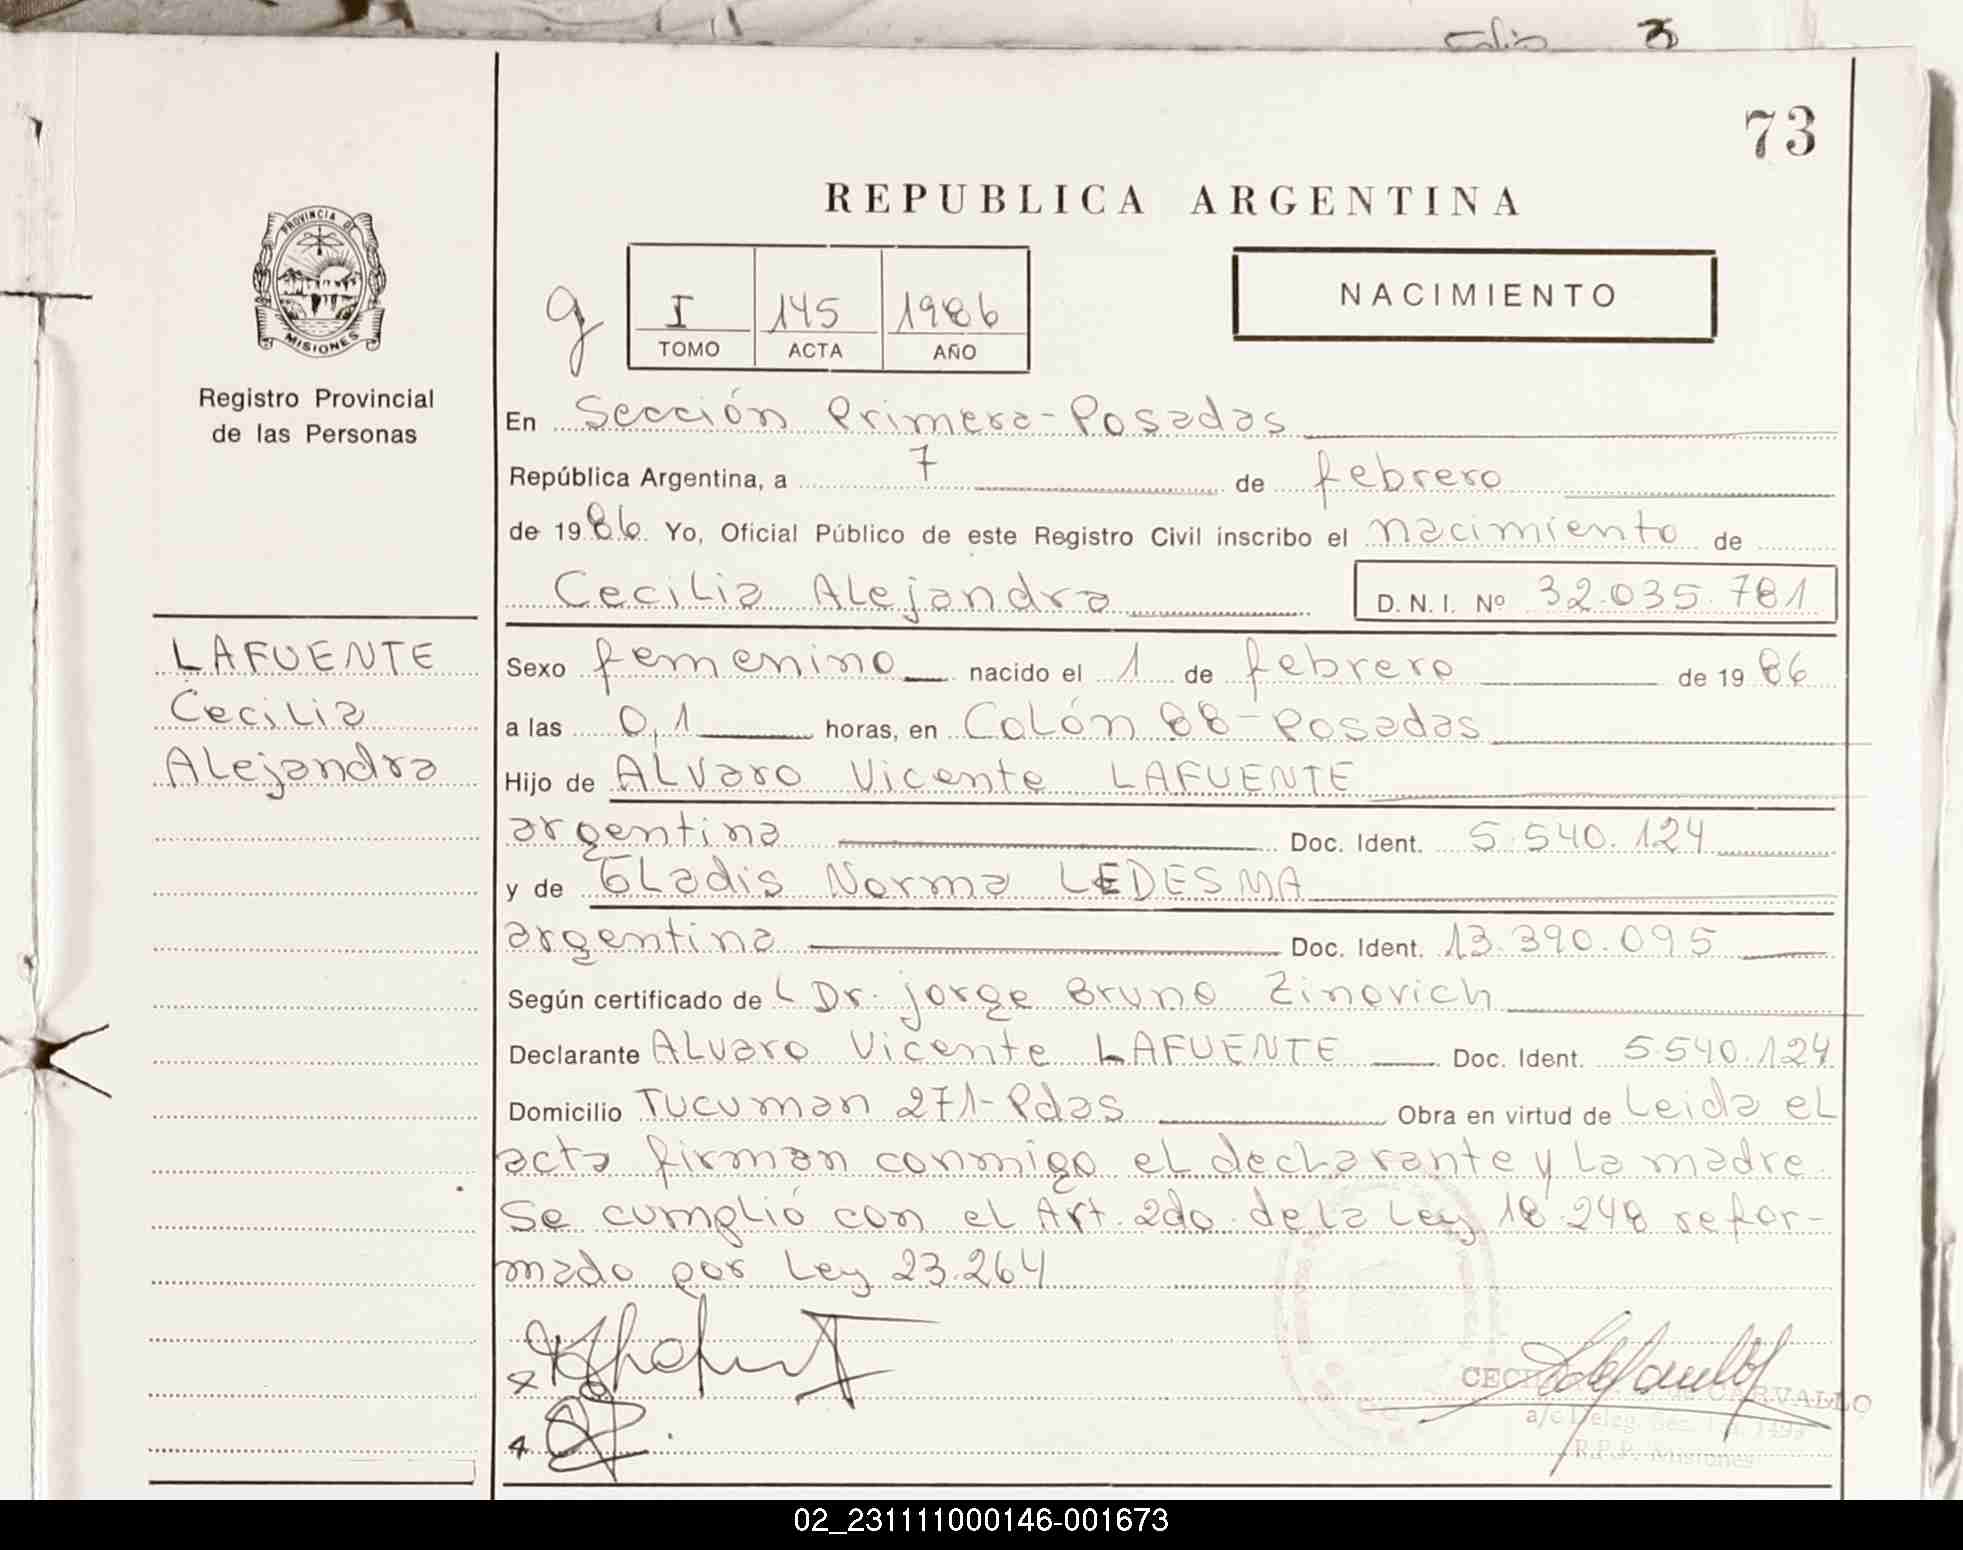 Folio 3
73
REPUBLICA ARGENTINA
PROVINCIA DE MISIONES
Registro Provincial
de las Personas
g
I 145 1986
TOMO ACTA AÑO
NACIMIENTO
En Sección Primera-Posadas
República Argentina, a 7 de febrero
de 1986. Yo, Oficial Público de este Registro Civil inscribo el nacimiento de
Cecilia Alejandra D.N.I. Nº 32.035.781
LAFUENTE
Cecilia
Alejandra
Sexo femenino nacido el 1 de febrero de 1986
a las 0,1 horas, en Colón 88-Posadas
Hijo de Alvaro Vicente LAFUENTE
argentina Doc. Ident. 5.540.124
y de Gladis Norma LEDESMA
argentina Doc. Ident. 13.390.095
Según certificado de L Dr. jorge Bruno Zinovich
Declarante Alvaro Vicente LAFUENTE Doc. Ident. 5.540.124
Domicilio Tucuman 271-Pdas Obra en virtud de Leida el
acta firman conmigo el declarante y la madre.
Se cumplió con el Art. 2do. de la Ley 18.248 refor-
mado por Ley 23.264
CARVALLO
a/c Deleg. Sec. 1493
R.P.P. Misiones
02_231111000146-001673